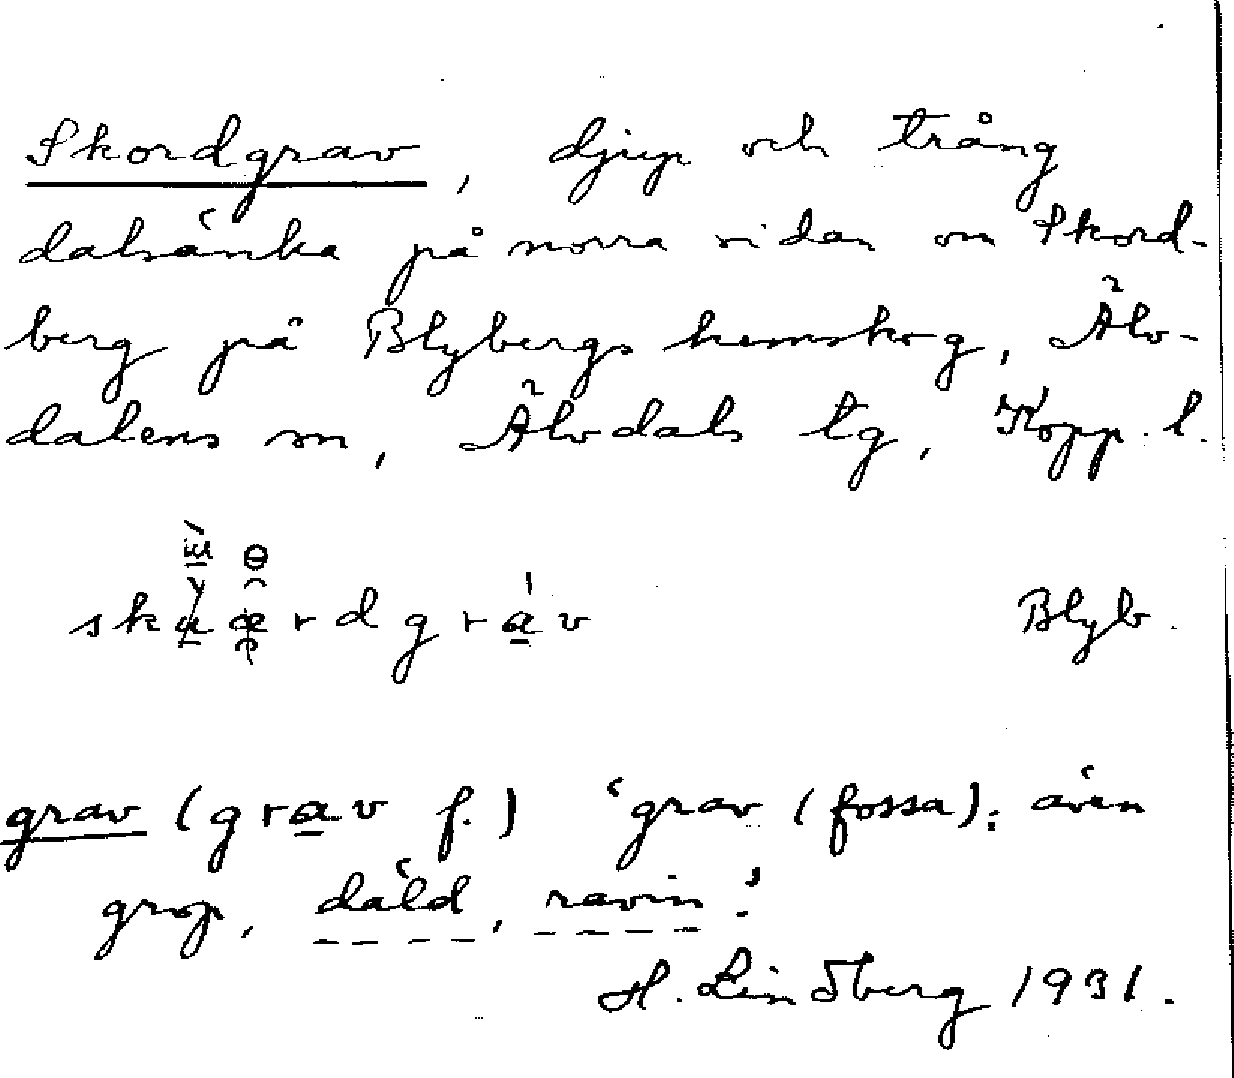 Skordgrav, djup och trång
dalsänka på norra sidan om Skord-
berg på Blybergs hemskog, Älv-
dalens sn, Älvdals tg, Kopp. l.
Blyb.
grav (grav f.) 'grav (fossa); även
grop, däld, ravin.'
H. Lindberg 1931.